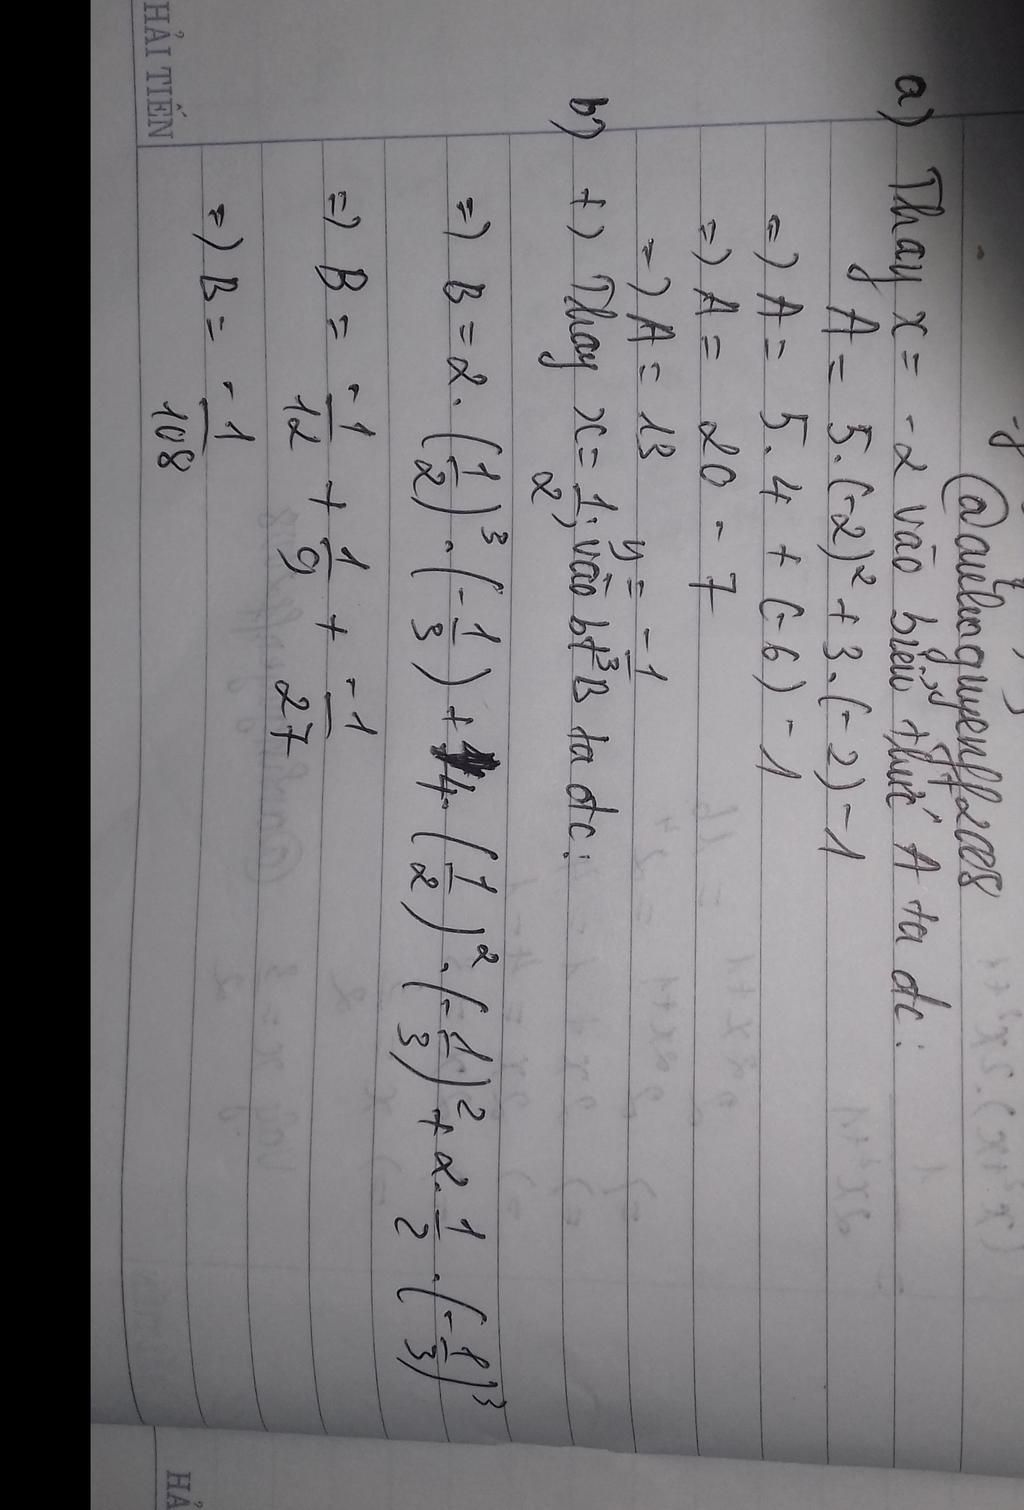 @auelnaguyenff2008
a) Thay x = -2 vào biểu thức A ta dc:
A = 5.(-2)² + 3.(-2) - 1
=) A = 5.4 + (-6) - 1
=) A = 20 - 7
=) A = 13
b) +) Thay x = 1/2; y = -1/3 vào bt B ta dc:
=) B = 2.(1/2)³.(-1/3) + 4.(1/2)².(-1/3)² + 2.1/2.(-1/3)³
=) B = -1/12 + 1/9 + -1/27
=) B = -1/108
HẢI TIẾN
HẢ